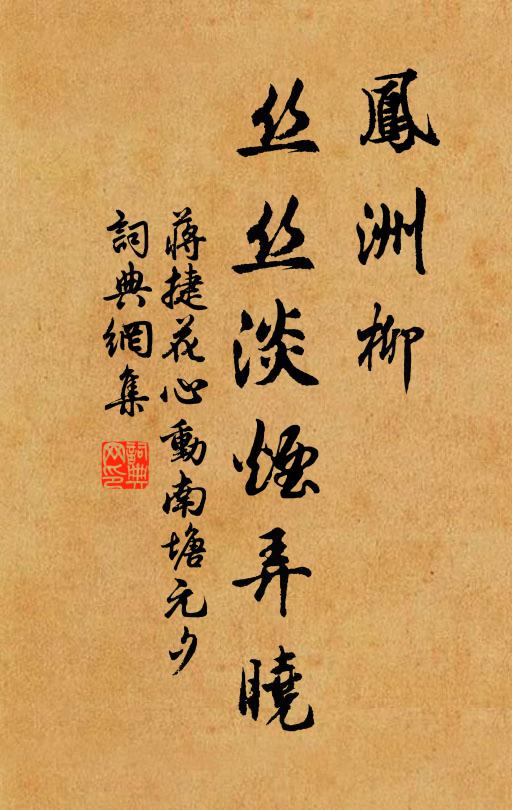 鳳洲柳
丝丝淡煙弄曉
蔣捷花心動南塘元夕
詞典網集
詞典网印